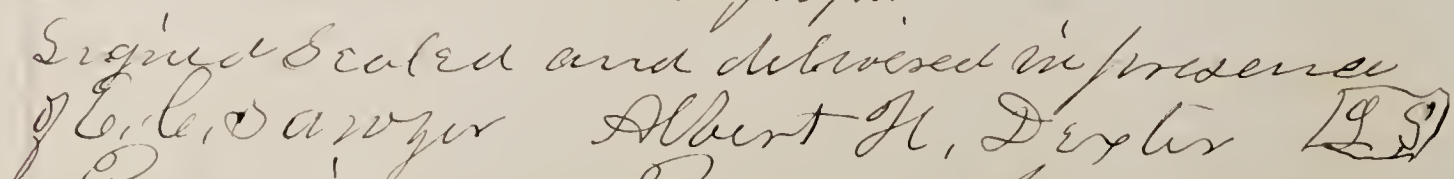 Signed Sealed and delivered in presence
of E. C. Sawyer Albert H. Dexter [L S]